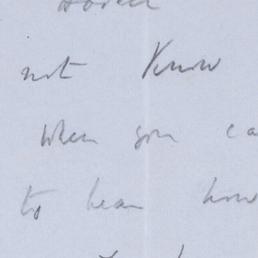 not Know
when you ca
to hear how